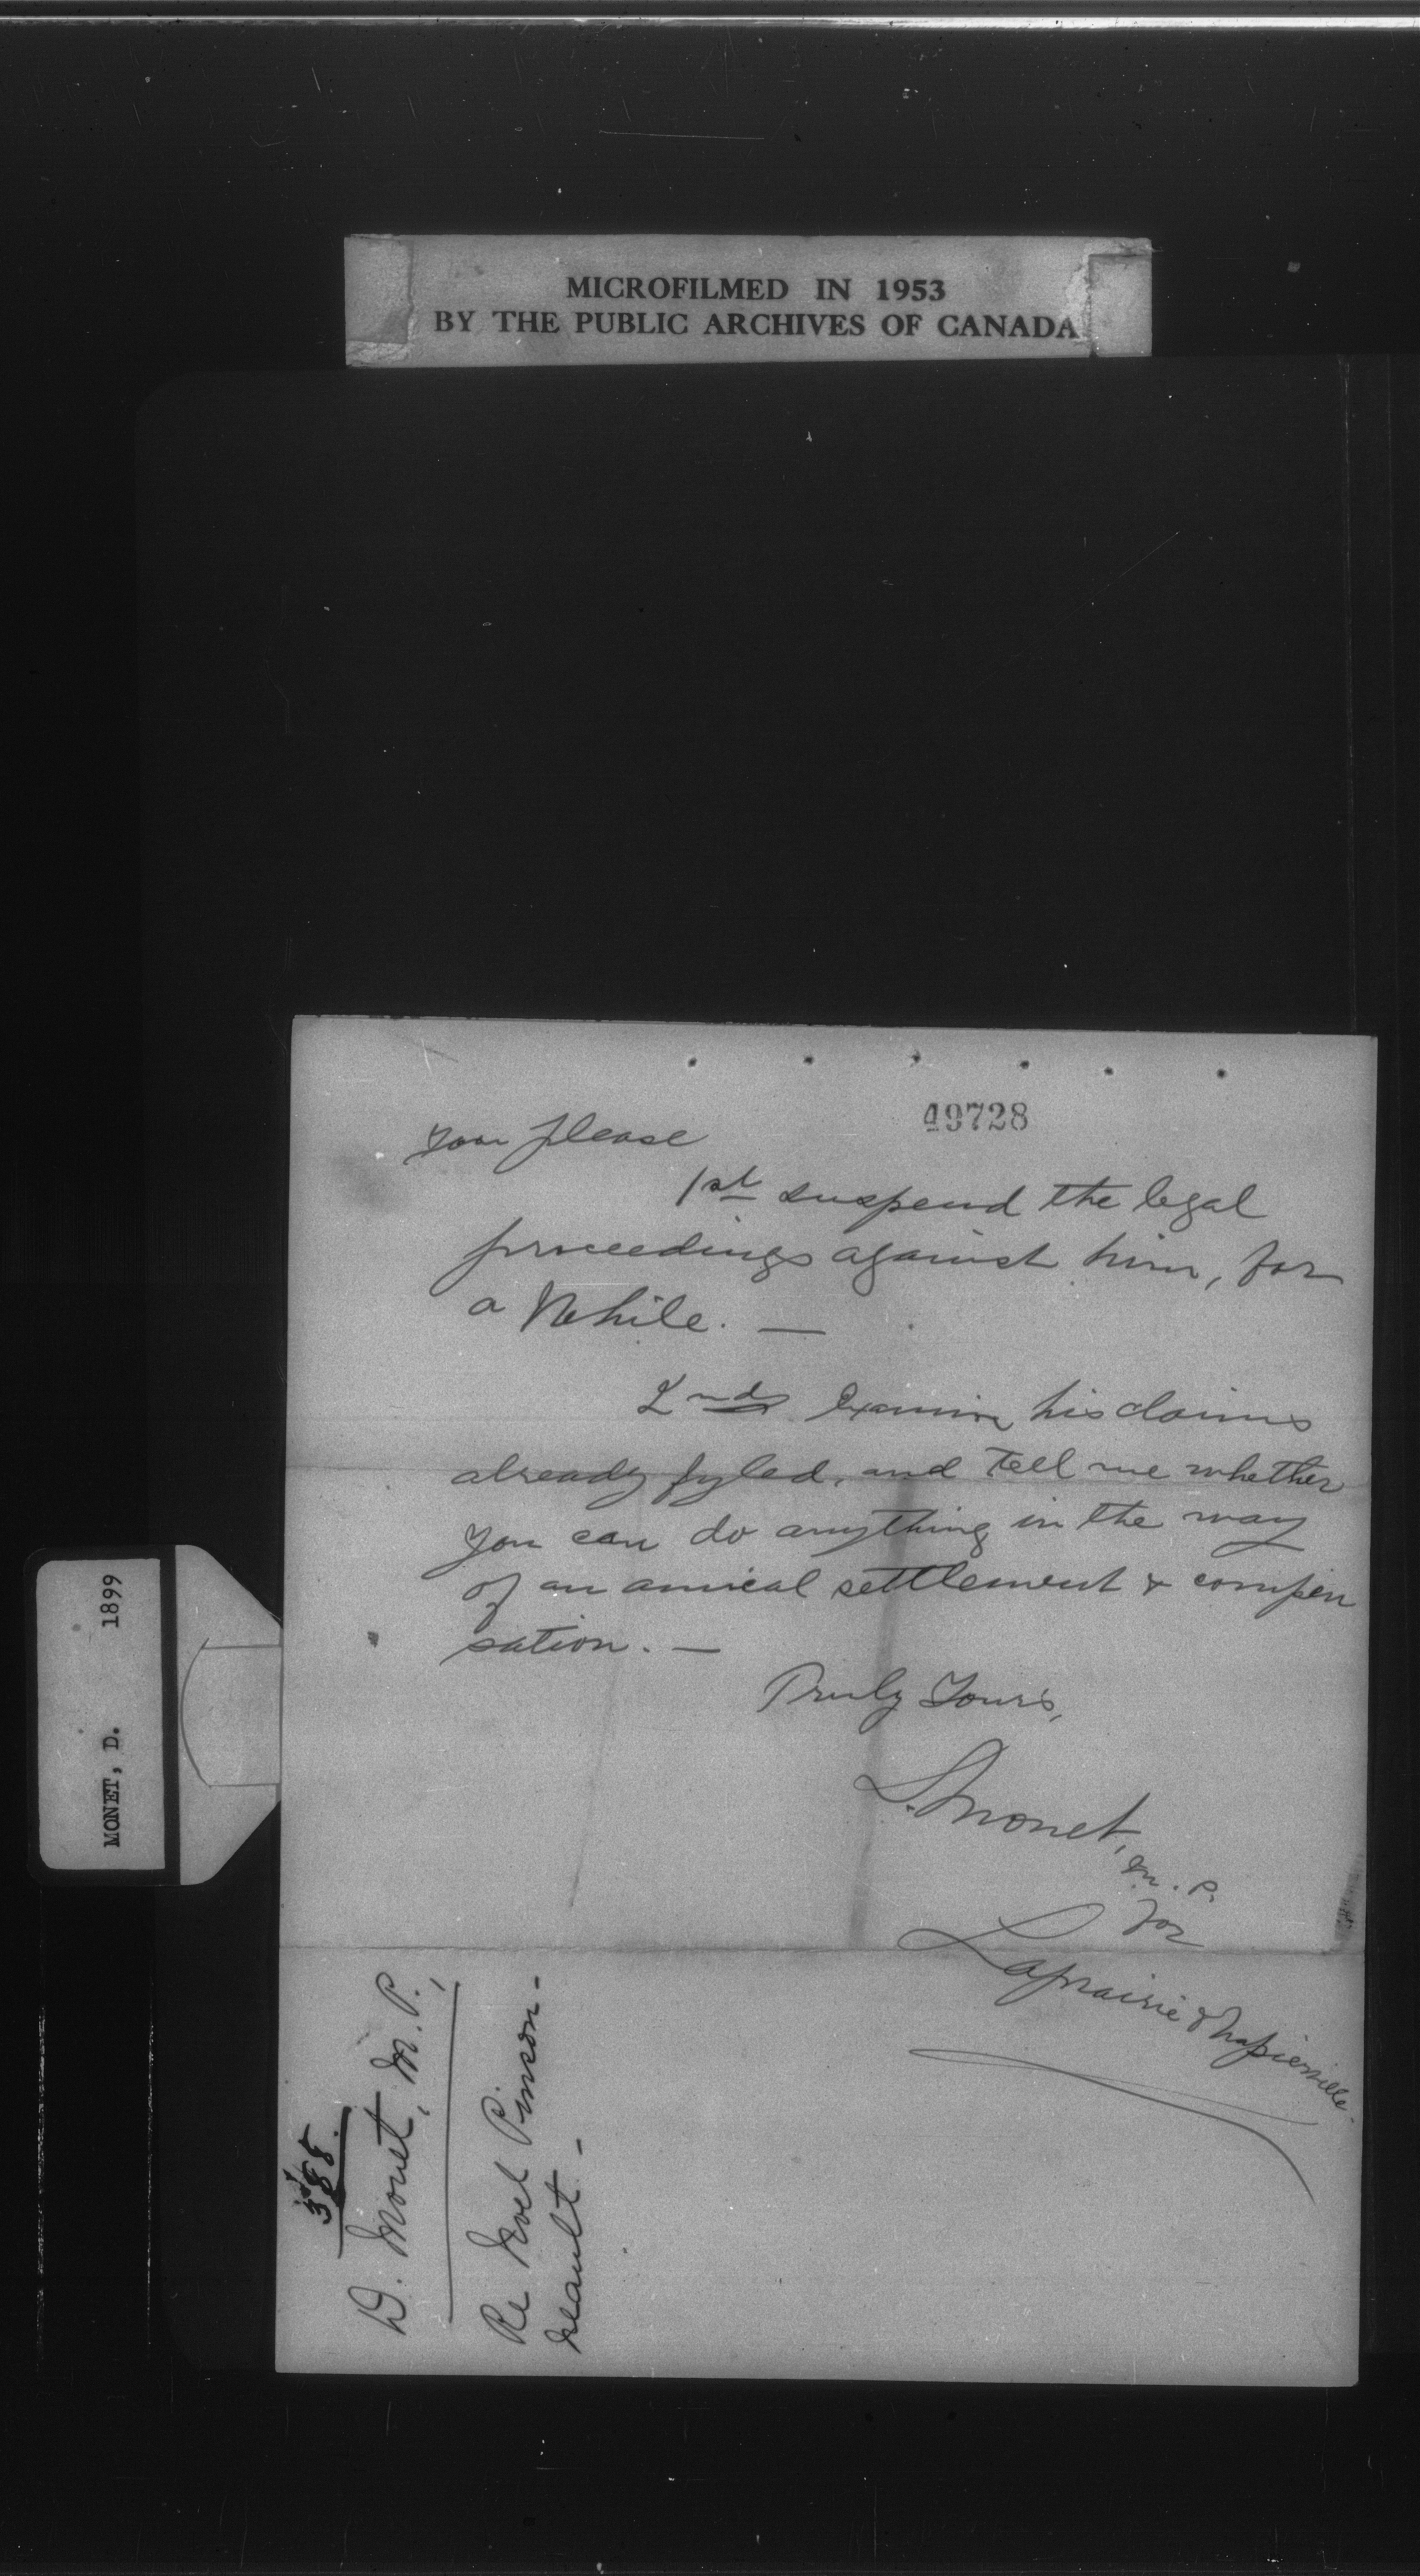 MICROFILMED IN 1953
BY THE PUBLIC ARCHIVES OF CANADA
49728
you please
1st suspend the legal
proceedings against him, for
a While. —
2nd Examine his claims
already fyled, and tell me whether
you can do anything in the way
of an amical settlement & compen
sation. —
Truly Yours,
D. Monet,
M. P.
for
Laprairie & Napierville.
MONET, D. 1899
388
D. Monet, M. P.,
Re Noel Pinson-
neault -